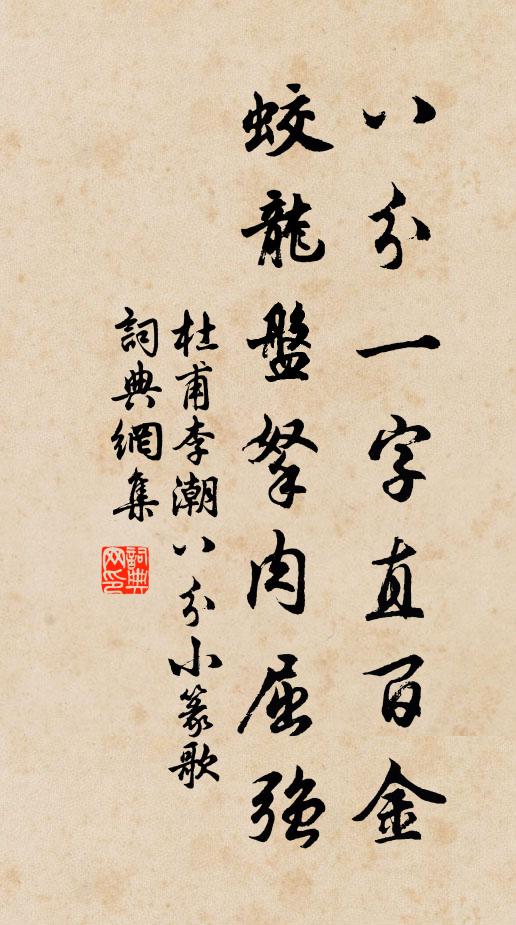 八分一字直百金
蛟龍盤拏肉屈強
杜甫李潮八分小篆歌
詞典網集
詞典网印